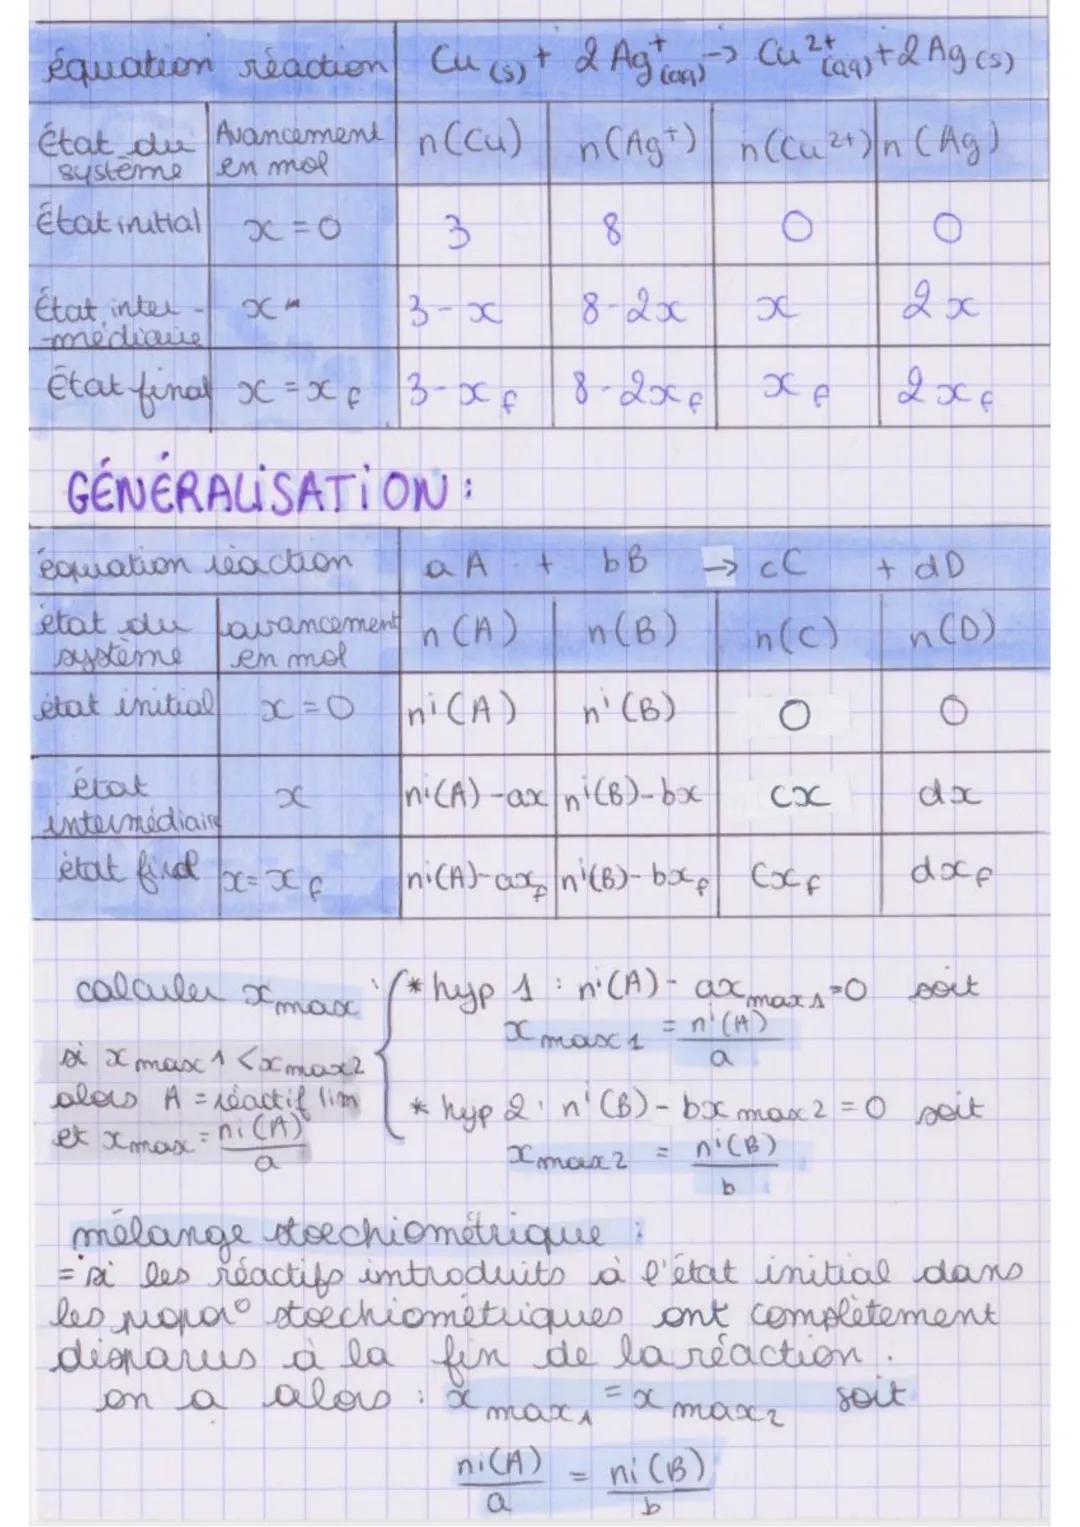 équation réaction Cu (s) + 2 Ag⁺ (aq) → Cu²⁺ (aq) + 2 Ag (s)
État du système Avancement en mol n(Cu) n(Ag⁺) n(Cu²⁺) n(Ag)
État initial x = 0 3 8 0 0
État inter--médiaire x 3-x 8-2x x 2x
État final x = x_f 3-x_f 8-2x_f x_f 2x_f
GÉNÉRALISATION :
équation réaction aA + bB → cC + dD
état du système avancement en mol n(A) n(B) n(C) n(D)
état initial x = 0 ni(A) ni(B) 0 0
état intermédiaire x ni(A)-ax ni(B)-bx cx dx
état final x = x_f ni(A)-ax_f ni(B)-bx_f Cx_f dx_f
calculer x max : * hyp 1 : ni(A) - ax max1 = 0 soit
x max 1 = ni(A)/a
si x max 1 < x max 2
alors A = réactif lim
et x max = ni(A)/a
* hyp 2 : ni(B) - bx max 2 = 0 soit
x max 2 = ni(B)/b
mélange stoechiométrique :
= si les réactifs introduits à l'état initial dans
les propor° stoechiométriques ont complètement
disparus à la fin de la réaction.
on a alors : x max 1 = x max 2 soit
ni(A)/a = ni(B)/b